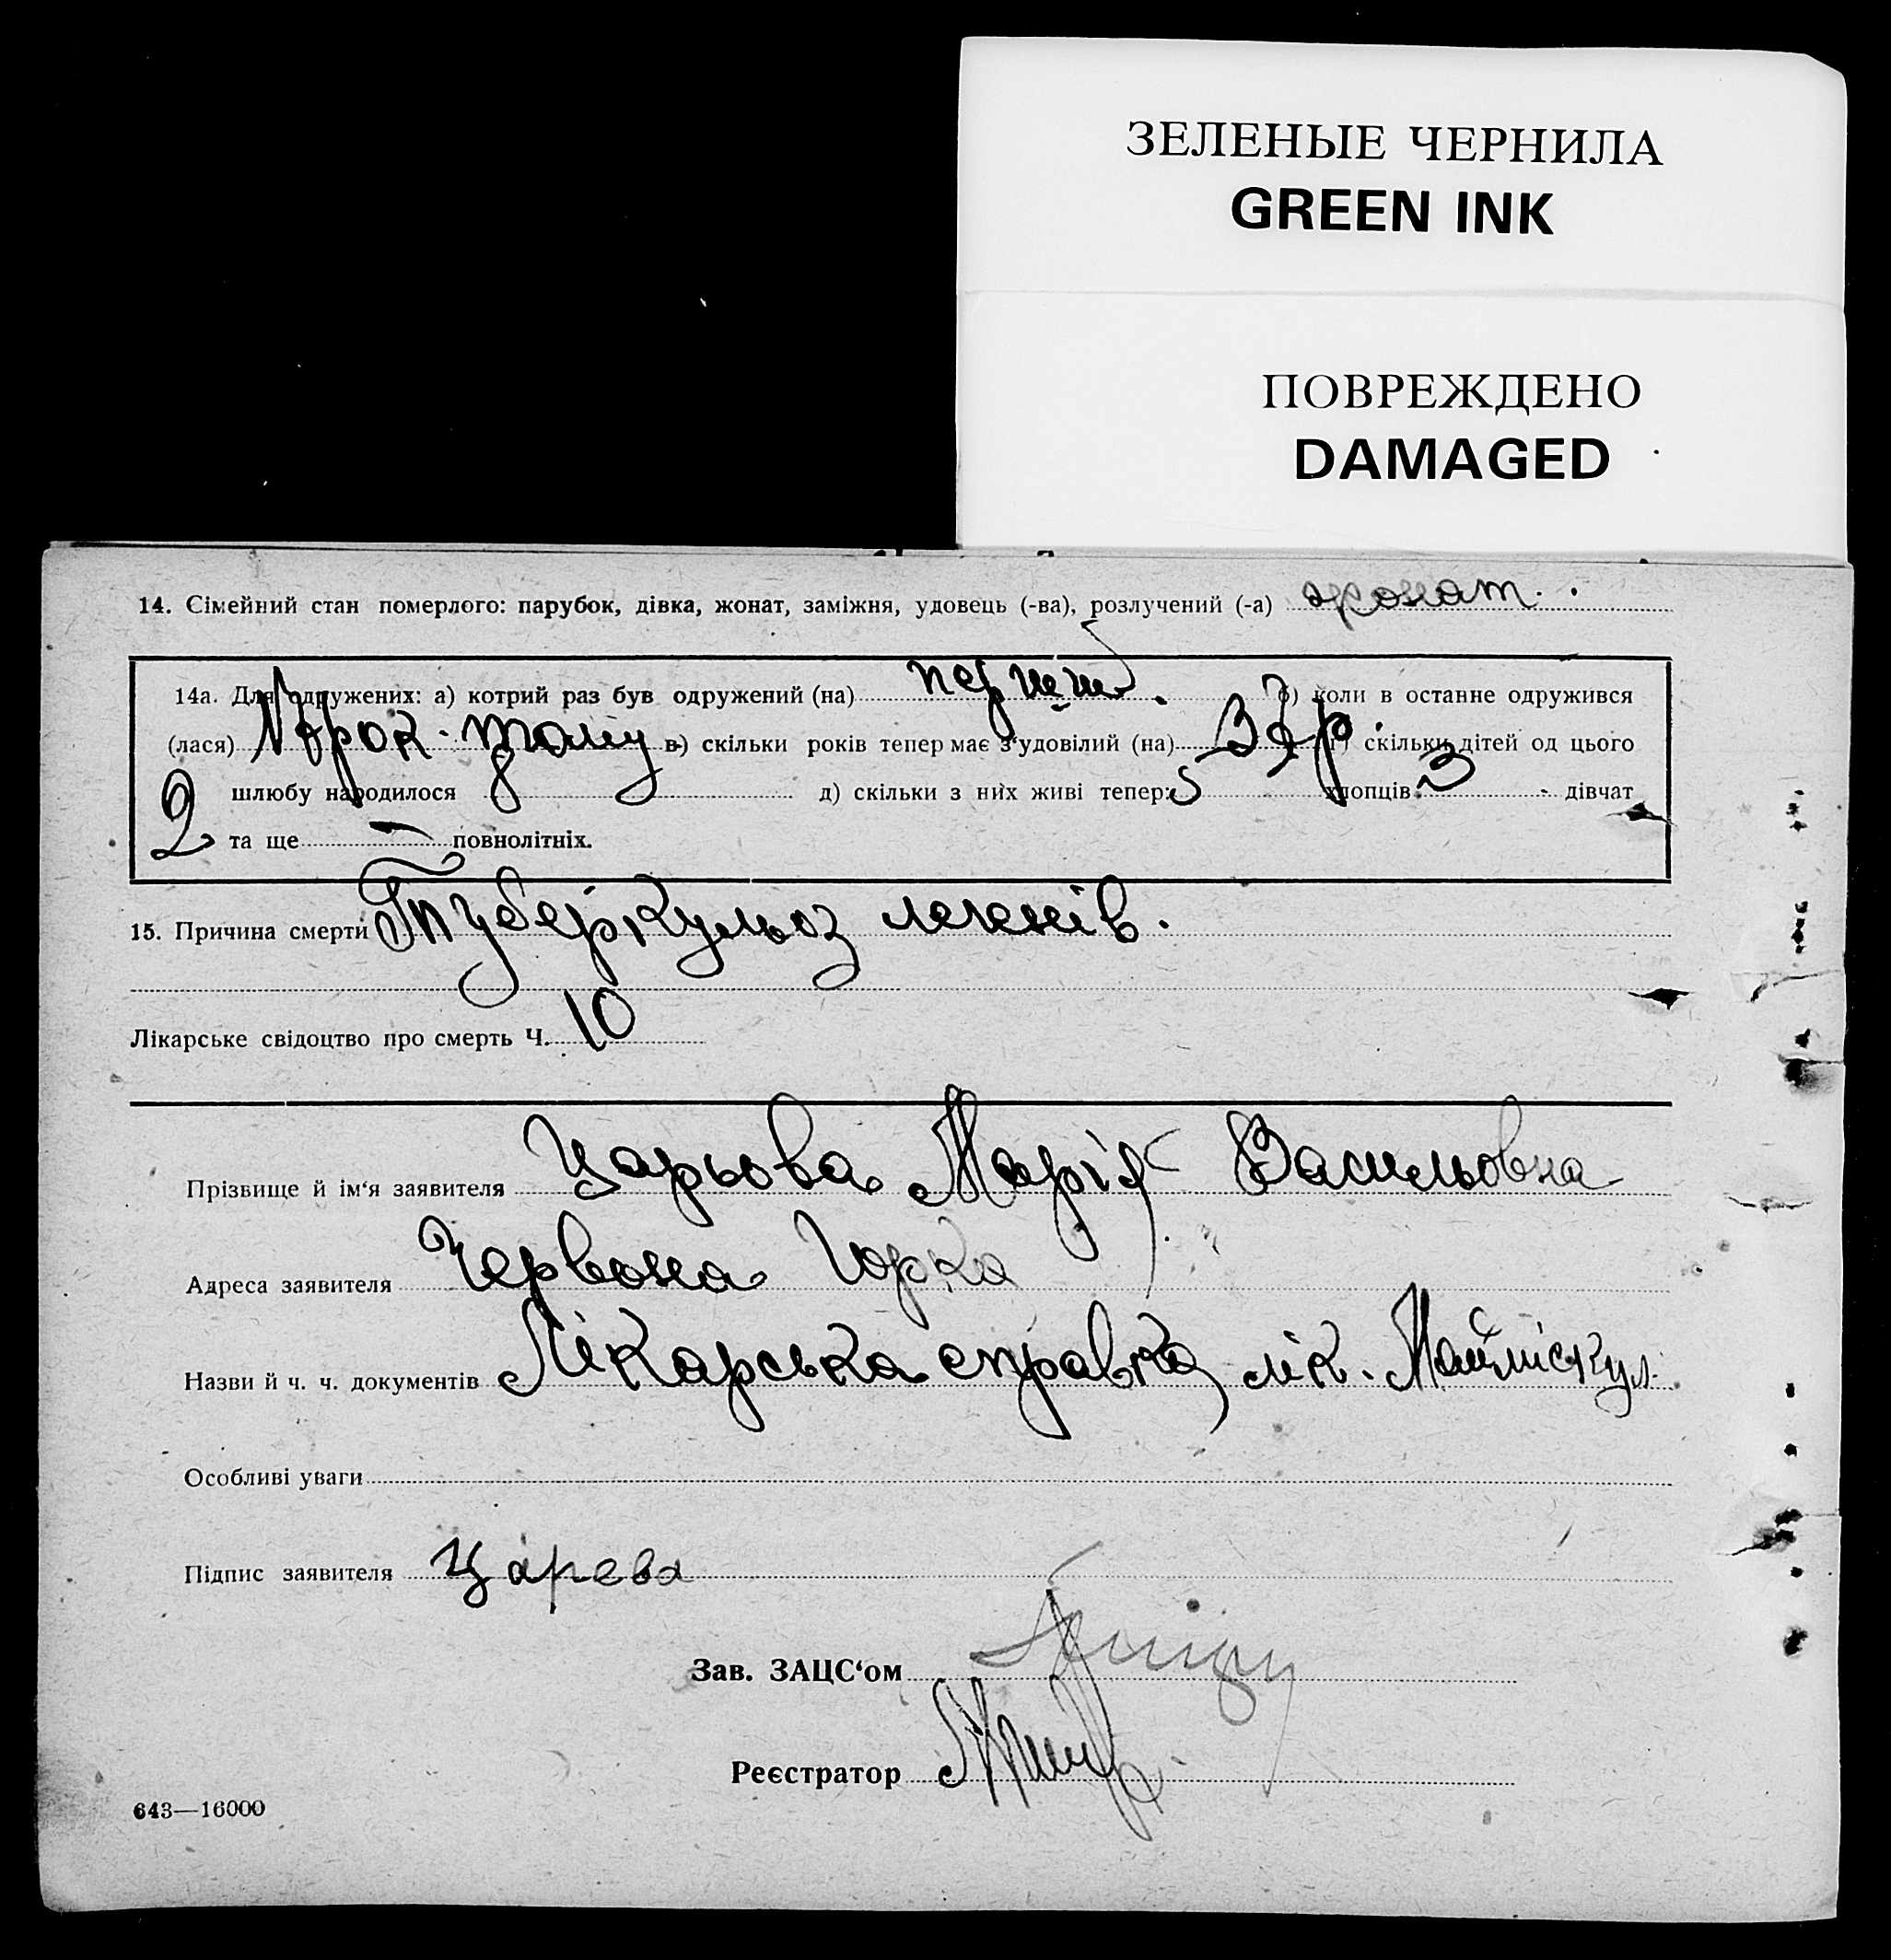 ЗЕЛЕНЫЕ ЧЕРНИЛА
GREEN INK
ПОВРЕЖДЕНО
DAMAGED
14. Сімейний стан померлого: парубок, дівка, жонат, заміжня, удовець (-ва), розлучений (-а) жонат.
14а. Для одружених: а) котрий раз був одружений (на) перший. б) коли в останнє одружився
(лася) рок. тому в) скільки років тепер має з‘удовілий (на) р. г) скільки дітей од цього
шлюбу народилося 8 д) скільки з них живі тепер: 5 хлопців 3 дівчат
2 та ще — повнолітніх.
15. Причина смерти Туберкульоз легенів.
Лікарське свідоцтво про смерть Ч. 10
Прізвище й ім‘я заявителя Царьова Марія Васильовна
Адреса заявителя Червона Горка
Назви й ч. ч. документів Лікарська справка лік.
Особливі уваги
Підпис заявителя Царева
Зав. ЗАЦС‘ом
Реєстратор
643—16000